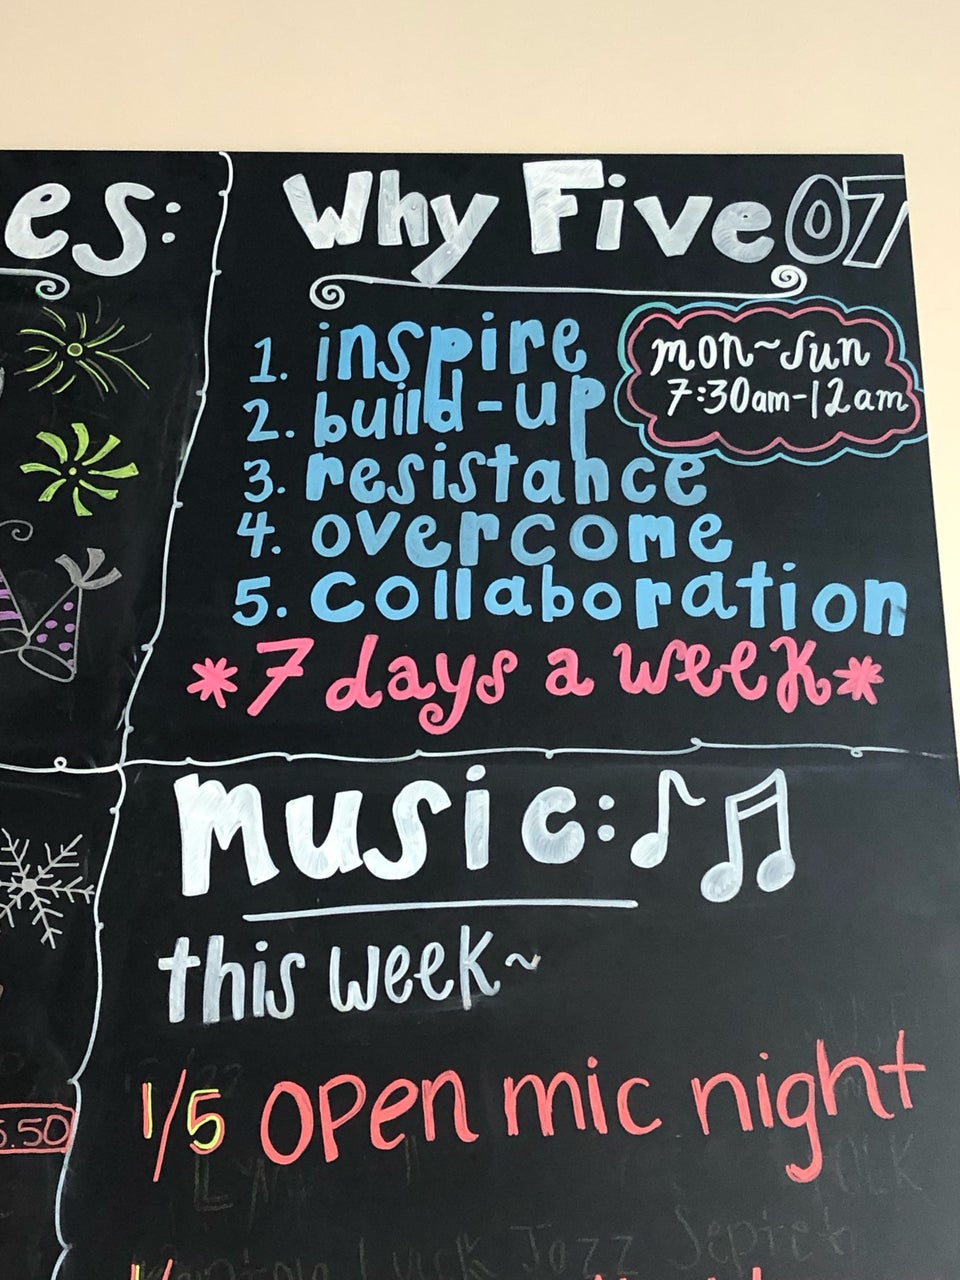 es:
Why Five 07
mon~sun
7:30am-12am
1. inspire
2. build-up
3. resistance
4. overcome
5. collaboration
*7 days a week*
music:
this week~
5.50
1/5 open mic night
Jazz Septet